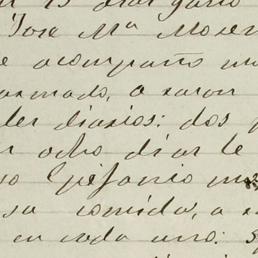 José Mª Moren
e acompaño un
armado, a razon
les diarios: dos
r ocho dias le
so Epifanio
su comida, a
en cada uno: